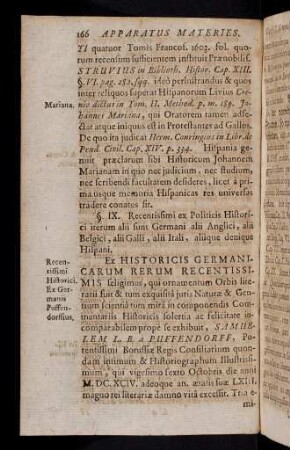 166 APPARATUS MATERIES.
TI quatuor Tomis Francof. 1603. fol. quo-
rum recensum sufficientem instituit Prænobilis.
STRUVIUS in Biblioth. Histor. Cap. XIII.
§. VI. pag. 282. sqq. ideò perlustrandus & quos
inter reliquos superat Hispanorum Livius
dictur in Tom. II. Method. p. m. 189. Jo-
Mariana.
hannes Mariana, qui Oratorem tamen adfe-
ctat atque iniquus est in Protestantes ad Gallos.
De quo ita judicat Herm. Conringius in Libr. de
Prud. Civil. Cap. XIV. p. 334. Hispania ge-
nuit præclarum sibi Historicum Johannem
Marianam in quo nec judicium, nec studium,
nec scribendi facultatem desideres, licet à pri-
ma usque memoria Hispanicas res universas
tradere conatus sit.
§. IX. Recentissimi ex Politicis Histori-
ci iterum alii sunt Germani alii Anglici, alii
Belgici, alii Galli, alii Itali, aliique denique
Hispani.
Recen-
tissimi
Historici.
Ex Ger-
manis
Puffen-
dorffius,
Ex HISTORICIS GERMANI-
CARUM RERUM RECENTISSI-
MIS seligimus, qui ornamentum Orbis lite-
ratii fuit & tum exquisita juris Naturæ & Gen-
tium scientia tum mira in componendis Com-
mentariis Historicis solertia ac felicitate in-
comparabilem propè se exhibuit, SAMUE-
LEM L. B. a PUFFENDORFF, Po-
tentissimi Borussiæ Regis Consiliarium quon-
dam intimum & Historiographum Illustrissi-
mum, qui vigesimo sexto Octobris die anni
M. DC. XCIV. adeoque an. ætatis suæ LXIII.
magno rei literariæ damno vità excessit. Tria e-
mi-